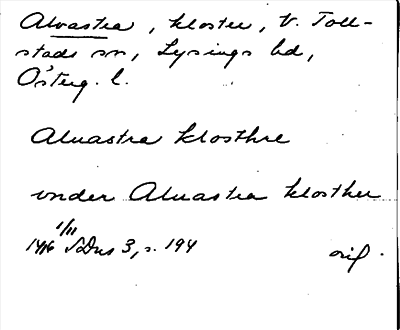 Alvastra, kloster, V. Toll-
stads sn, Lysings hd,
Österg. l.
Aluastra klosthre
vnder Aluastra klosther
1/11
1416 SDns 3, s. 194 orig.